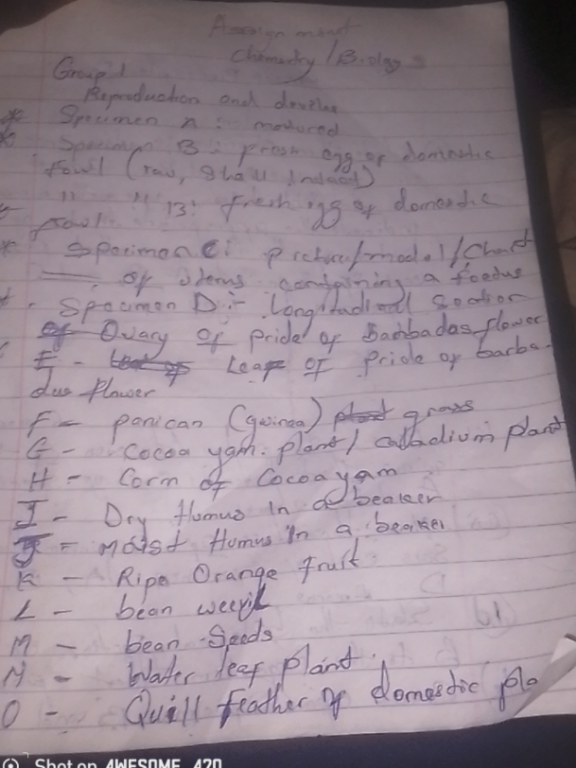 Assignment
Chemistry / Biology
Group 1
Reproduction and
* Specimen A :- matured
* Specimen B : fresh egg of domestic
fowl (raw, shell Intact)
" " B: fresh egg of domestic
fowl
* Speciman C: picture/model/Chart
of uterus containing a foetus
Specimen D :- Longitudinal Section
of Ovary of pride of Barbados flower
E - Leaf of Pride of barba-
dus flower
F - panican (guinea) plant grass
G - Cocoa yam. plant / calladium plant
H - Corm of Cocoayam
I - Dry Humus In a beaker
J = moist Humus In a beaker
K - Ripe Orange fruit
L - bean weevil
M - bean Seeds
N - Water leaf plant.
O - Quill feather of domestic
Shot on AWESOME A70